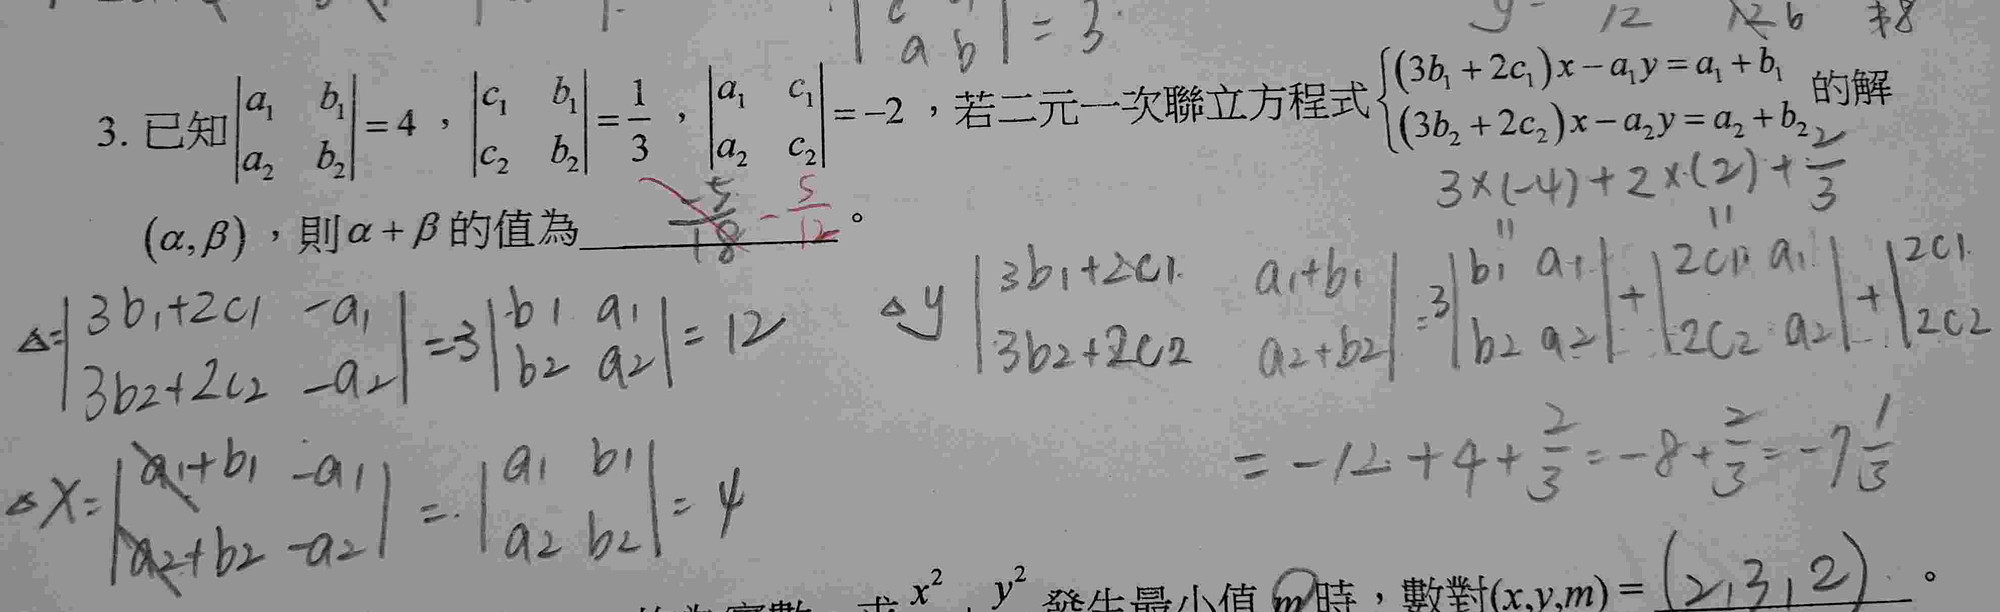 a b = 3
12
3. 已知|a₁ b₁; a₂ b₂|=4，|c₁ b₁; c₂ b₂|=1/3，|a₁ c₁; a₂ c₂|=-2，若二元一次聯立方程式{(3b₁+2c₁)x-a₁y=a₁+b₁; (3b₂+2c₂)x-a₂y=a₂+b₂ 的解
3×(-4)+2×(2)+2/3
(α,β)，則α+β的值為 -5/18 -5/12 。
Δ=|3b₁+2c₁ -a₁; 3b₂+2c₂ -a₂|=3|b₁ a₁; b₂ a₂|=12
Δy |3b₁+2c₁ a₁+b₁; 3b₂+2c₂ a₂+b₂|=3|b₁ a₁; b₂ a₂|+|2c₁ a₁; 2c₂ a₂|+|2c₁; 2c₂
=-12+4+2/3=-8+2/3=-7 1/3
Δx=|a₁+b₁ -a₁; a₂+b₂ -a₂|=|a₁ b₁; a₂ b₂|=4
x² y² 發生最小值m時，數對(x,y,m)=(2,3,2)。